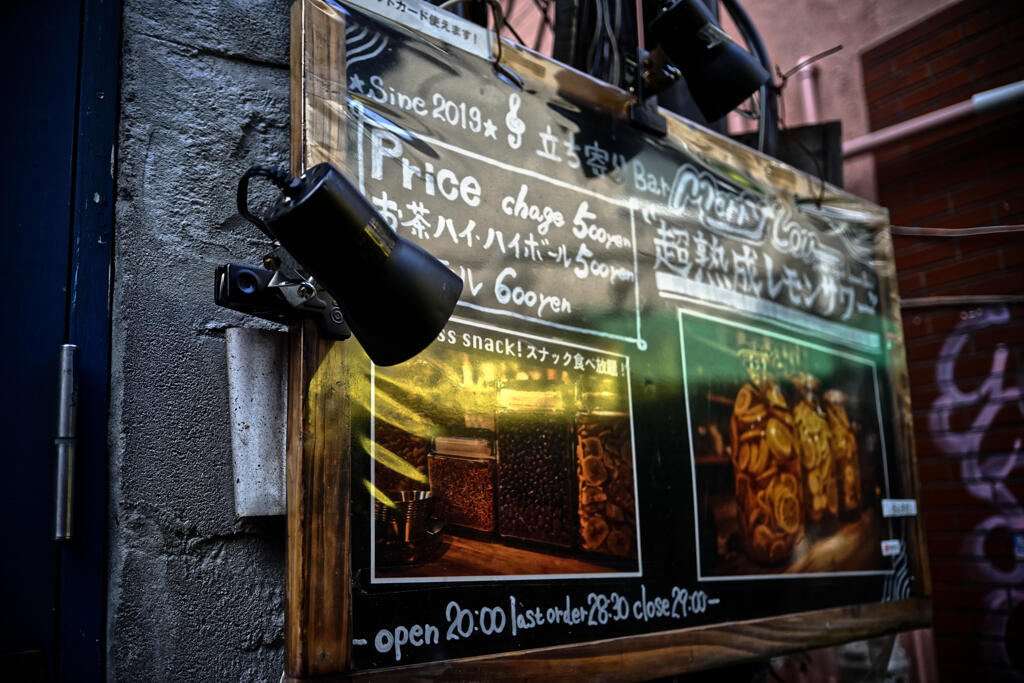 ットカード使えます!
★Sine 2019★
立ち寄りBar
Merry Cow
Price
chage 500yen
お茶ハイ・ハイボール500yen
ル 600yen
超熟成レモンサワー
ss snack! スナック食べ放題!
-open 20:00 last order 28:30 close 29:00-